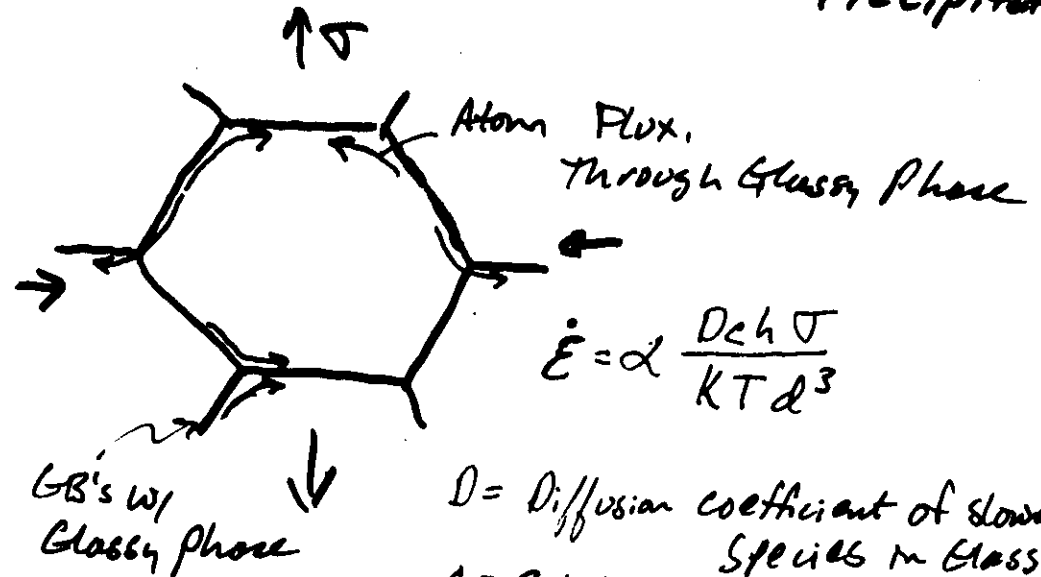 Precipitat
σ
Atom Flux.
Through Glassy Phase
ε̇ = α Dchσ / KTd³
GB's w/
Glassy Phase
D = Diffusion coefficient of slow
Species in Glass